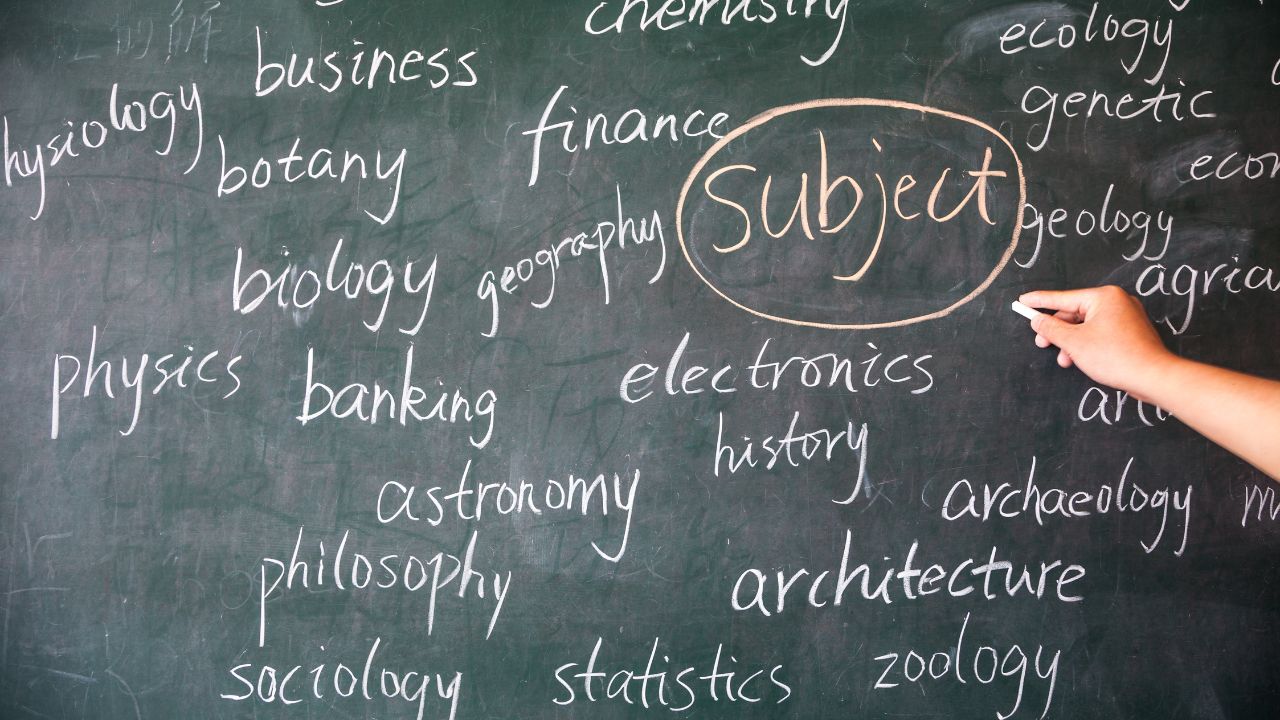 chemistry
ecology
business
genetic
hysiology
finance
botany
econ
subject
geology
geography
biology
agricu
physics
electronics
banking
history
astronomy
archaeology
philosophy
architecture
sociology
statistics
zoology